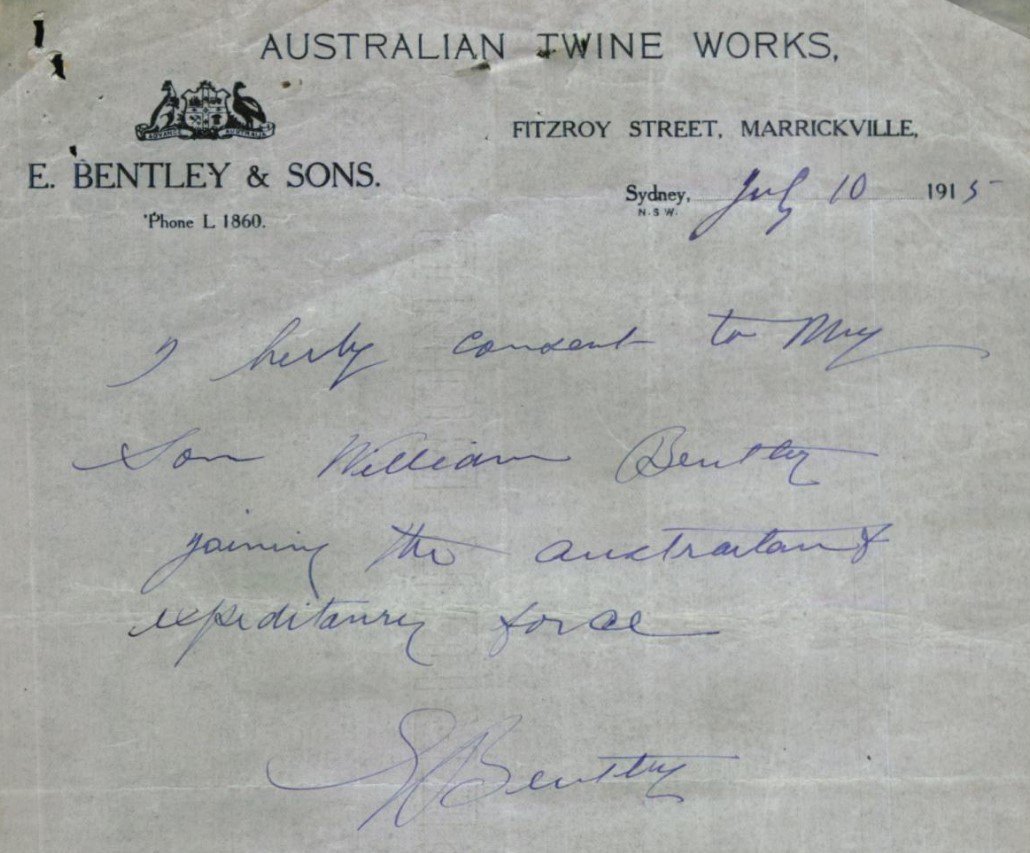 AUSTRALIAN TWINE WORKS,
ADVANCE AUSTRALIA
FITZROY STREET, MARRICKVILLE,
E. BENTLEY & SONS.
Sydney, July 10 1915
N.S.W.
'Phone L 1860.
I herby consent to My
Son William Bentley
joining the
expeditanry force
E Bentley